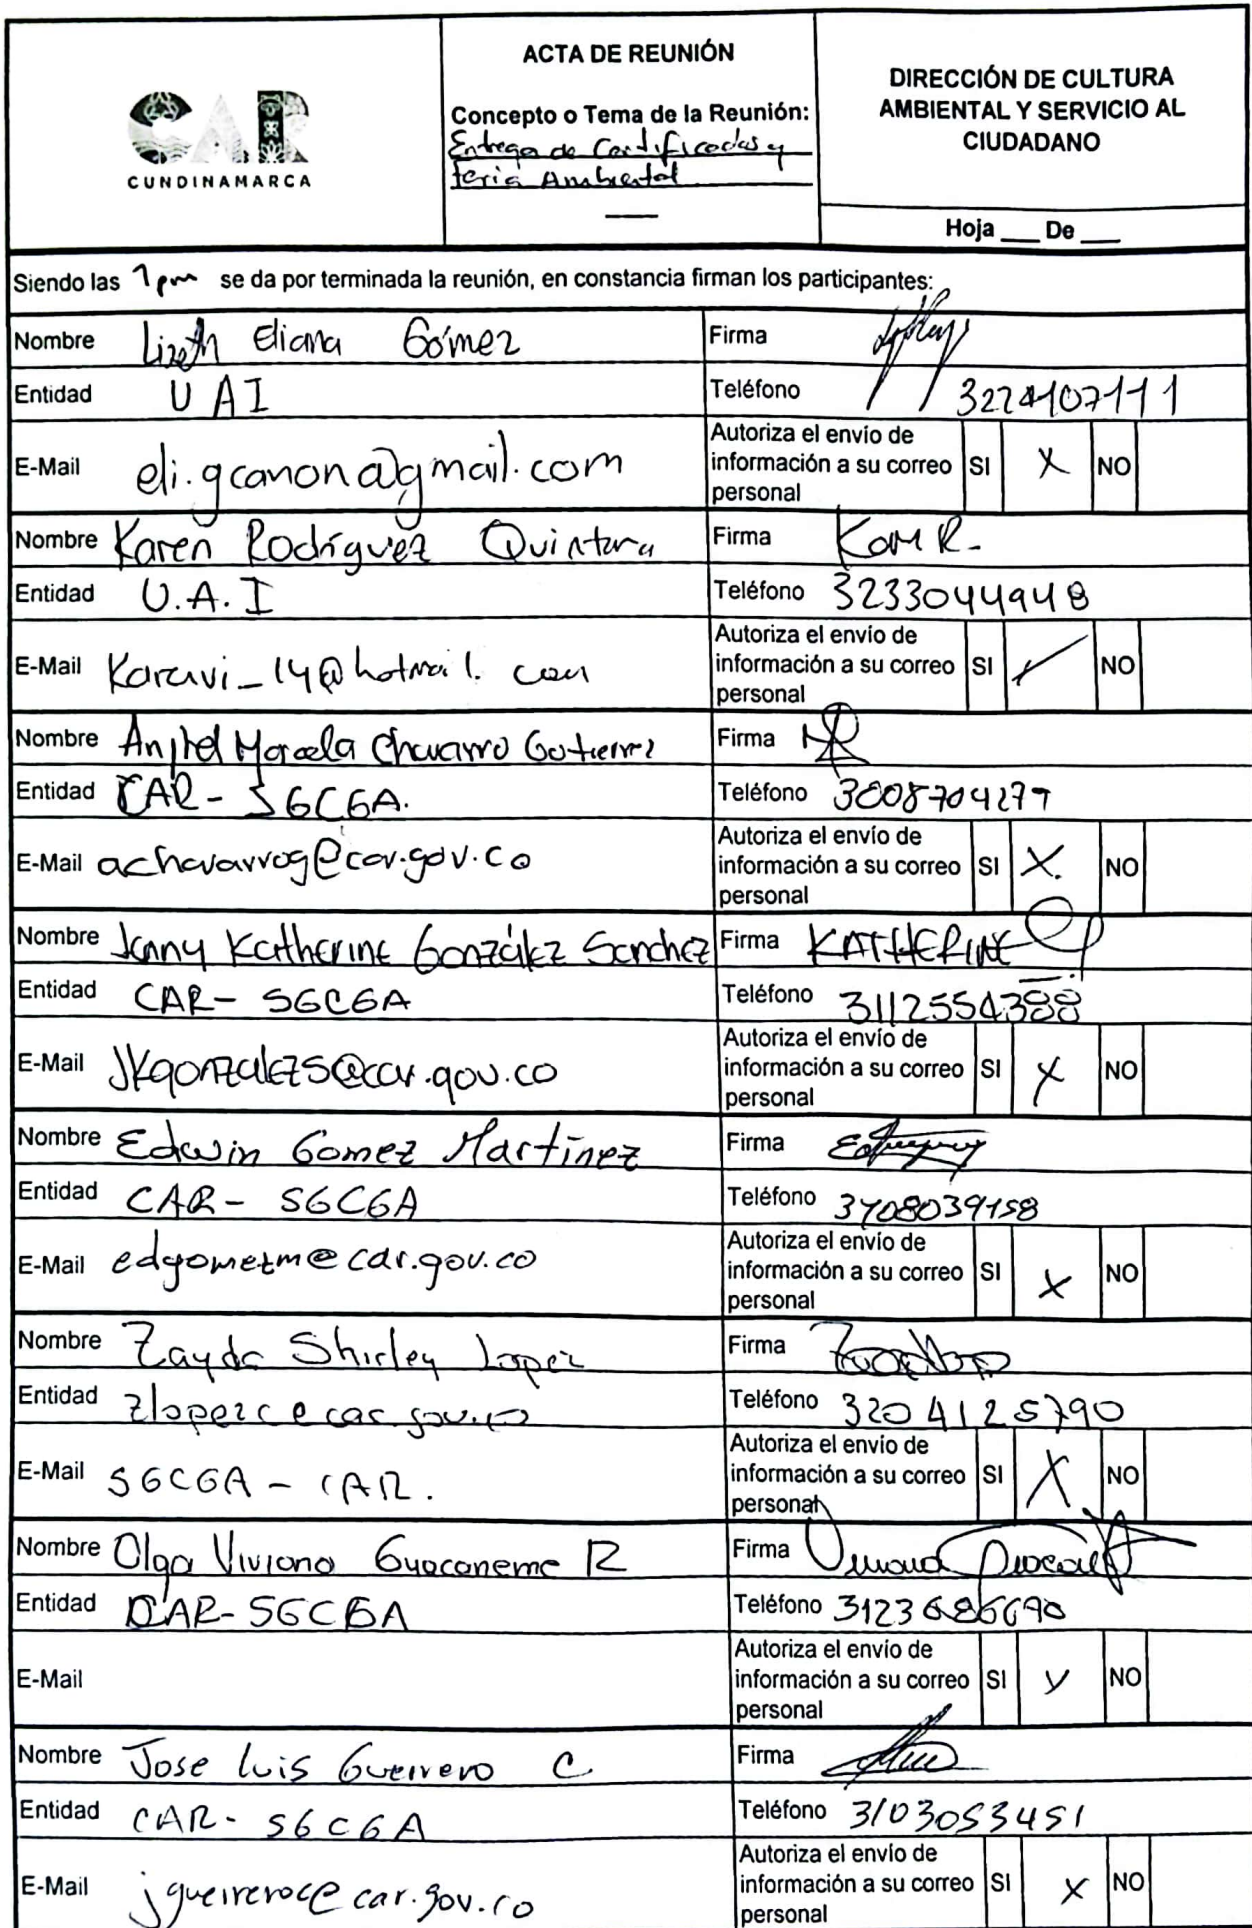 CAR
CUNDINAMARCA
ACTA DE REUNIÓN
Concepto o Tema de la Reunión:
Entrega de Certificados y
feria Ambiental
DIRECCIÓN DE CULTURA
AMBIENTAL Y SERVICIO AL
CIUDADANO
Hoja ___ De ___
Siendo las 1 pm se da por terminada la reunión, en constancia firman los participantes:
Nombre Lizeth Eliana Gómez Firma
Entidad U A I Teléfono 3224107111
E-Mail eli.gcanon@gmail.com
Autoriza el envío de
información a su correo SI X NO
personal
Nombre Karen Rodríguez Quintana Firma Karen R.
Entidad U.A.I Teléfono 3233044948
E-Mail Karavi_14@hotmail.com
Autoriza el envío de
información a su correo SI NO
personal
Nombre Marcela Chavarro Gutierrez Firma
Entidad CAR - SGCGA. Teléfono 3008704277
E-Mail achavarrog@car.gov.co
Autoriza el envío de
información a su correo SI X. NO
personal
Nombre Jenny Katherine González Sanchez Firma KATHERINE
Entidad CAR - SGCGA Teléfono 3112554388
E-Mail JKgonzalezs@car.gov.co
Autoriza el envío de
información a su correo SI X NO
personal
Nombre Edwin Gomez Martinez Firma
Entidad CAR - SGCGA Teléfono
E-Mail edgomezm@car.gov.co
Autoriza el envío de
información a su correo SI X NO
personal
Nombre Zayda Shirley Lopez Firma
Entidad zloperc@car.gov.co Teléfono 3204125790
E-Mail SGCGA - CAR.
Autoriza el envío de
información a su correo SI X NO
personal
Nombre Olga Viviana Guacaneme R Firma
Entidad CAR-SGCGA Teléfono
E-Mail
Autoriza el envío de
información a su correo SI X NO
personal
Nombre Jose Luis Guerrero C Firma
Entidad CAR - SGCGA Teléfono 3103053451
E-Mail jguerreroc@car.gov.co
Autoriza el envío de
información a su correo SI X NO
personal